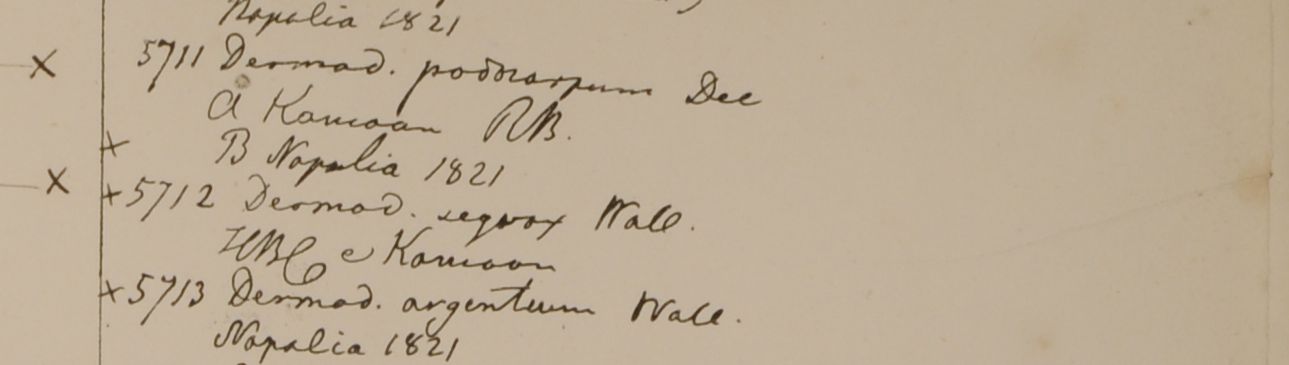 Napalia 1821
5711 Dermad. podocarpum Dec
A Kamaon RB.
B Napalia 1821
5712 Dermad. sequax Wall.
HBC e Kamaon
5713 Dermad. argenteum Wall.
Napalia 1821